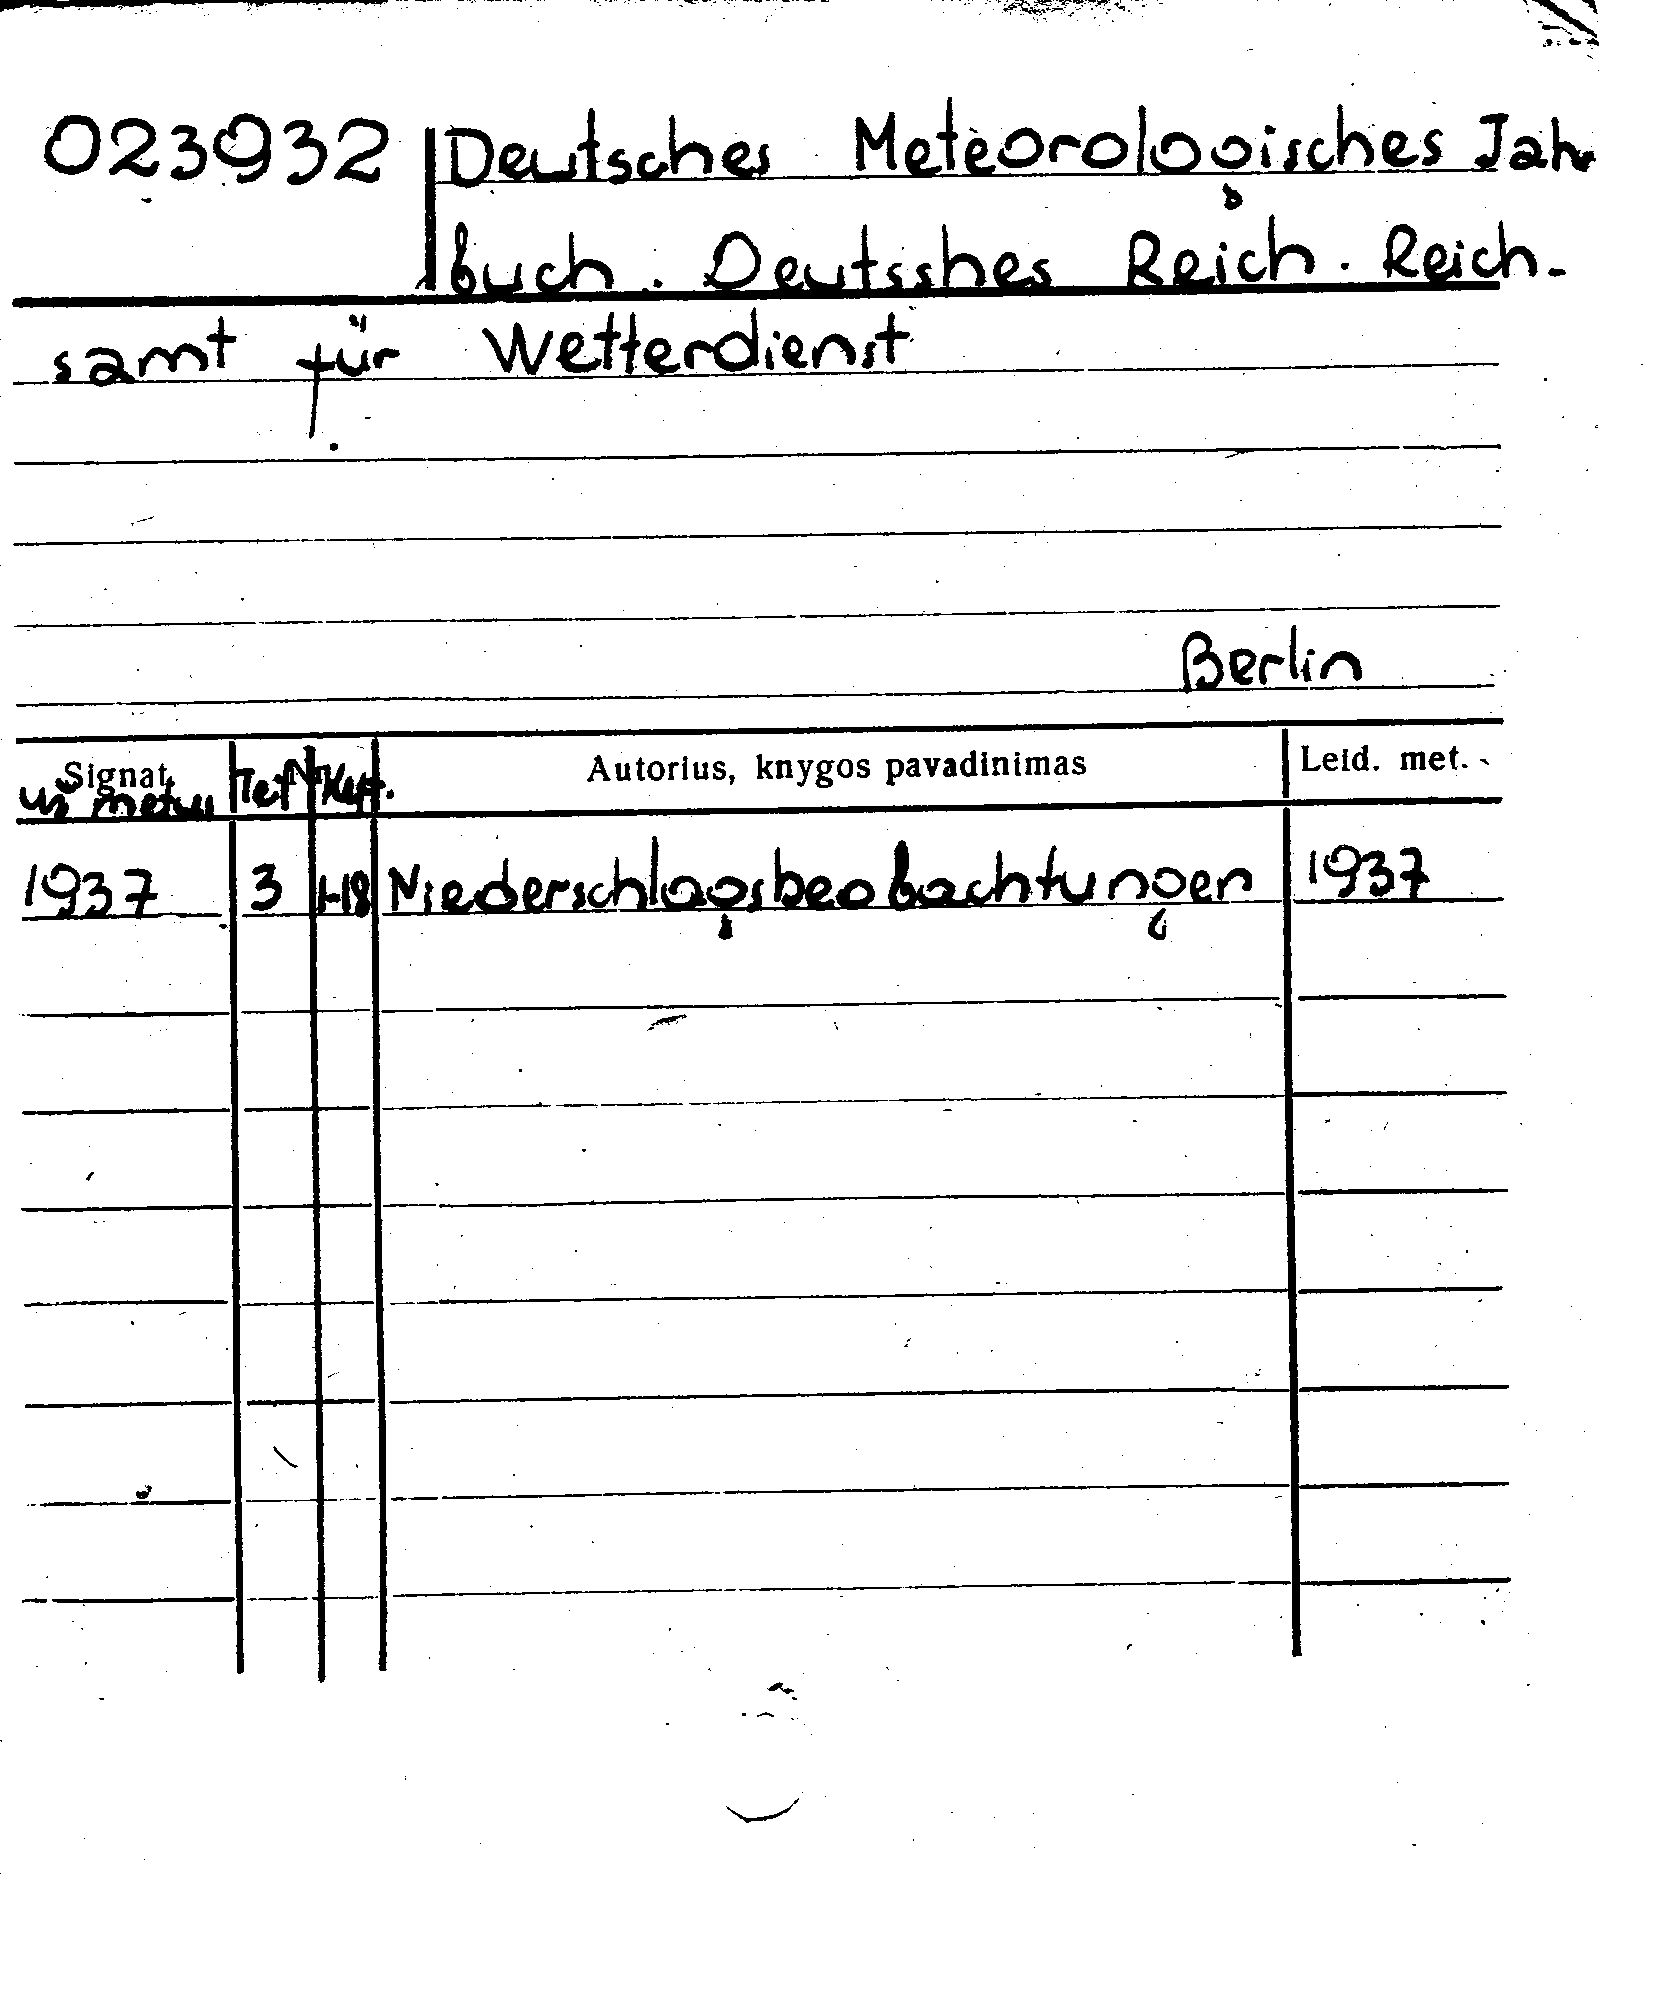 023932 Deutsches Meteorologisches Jahr
buch. Deutsshes Reich. Reich-
samt für Wetterdienst
Berlin
Signat. Nr. Autorius, knygos pavadinimas Leid. met.
už metus
1937 3 1-18 Niederschlagsbeobachtungen 1937